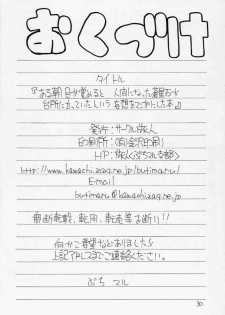 おくづけ
タイトル
『ある朝目が覚めると人間になった蓮石が
台所に立っていたという妄想をマンガにした本』
発行:サークル旅人
印刷所:(有)金沢印刷
HP:旅人ぷちまる邸
http://www.kawachi.zaq.ne.jp/butimaru/
E-mail
butimaru@kawachi.zaq.ne.jp
無断転載、転用、転売等は断り!!
何かご要望などありましたら
上記アドレスまでご連絡ください。
ぷち マル
30